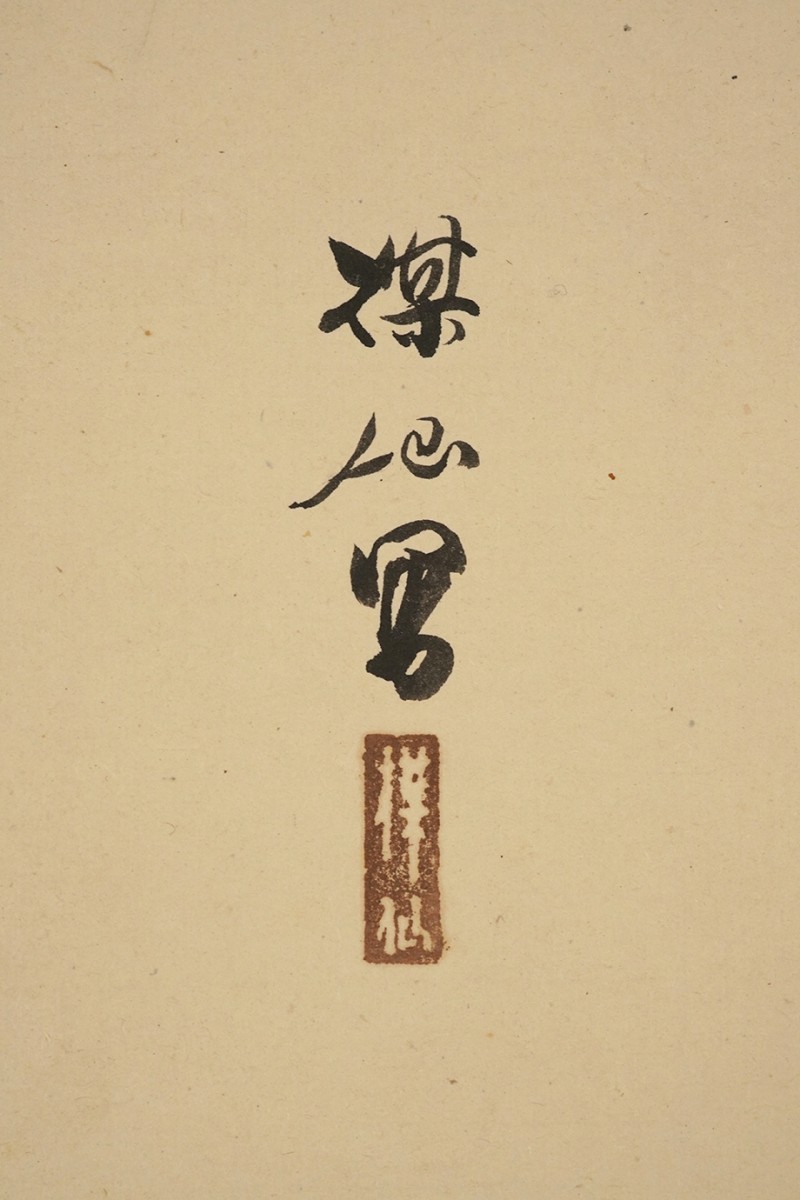 楳仙写
楳仙